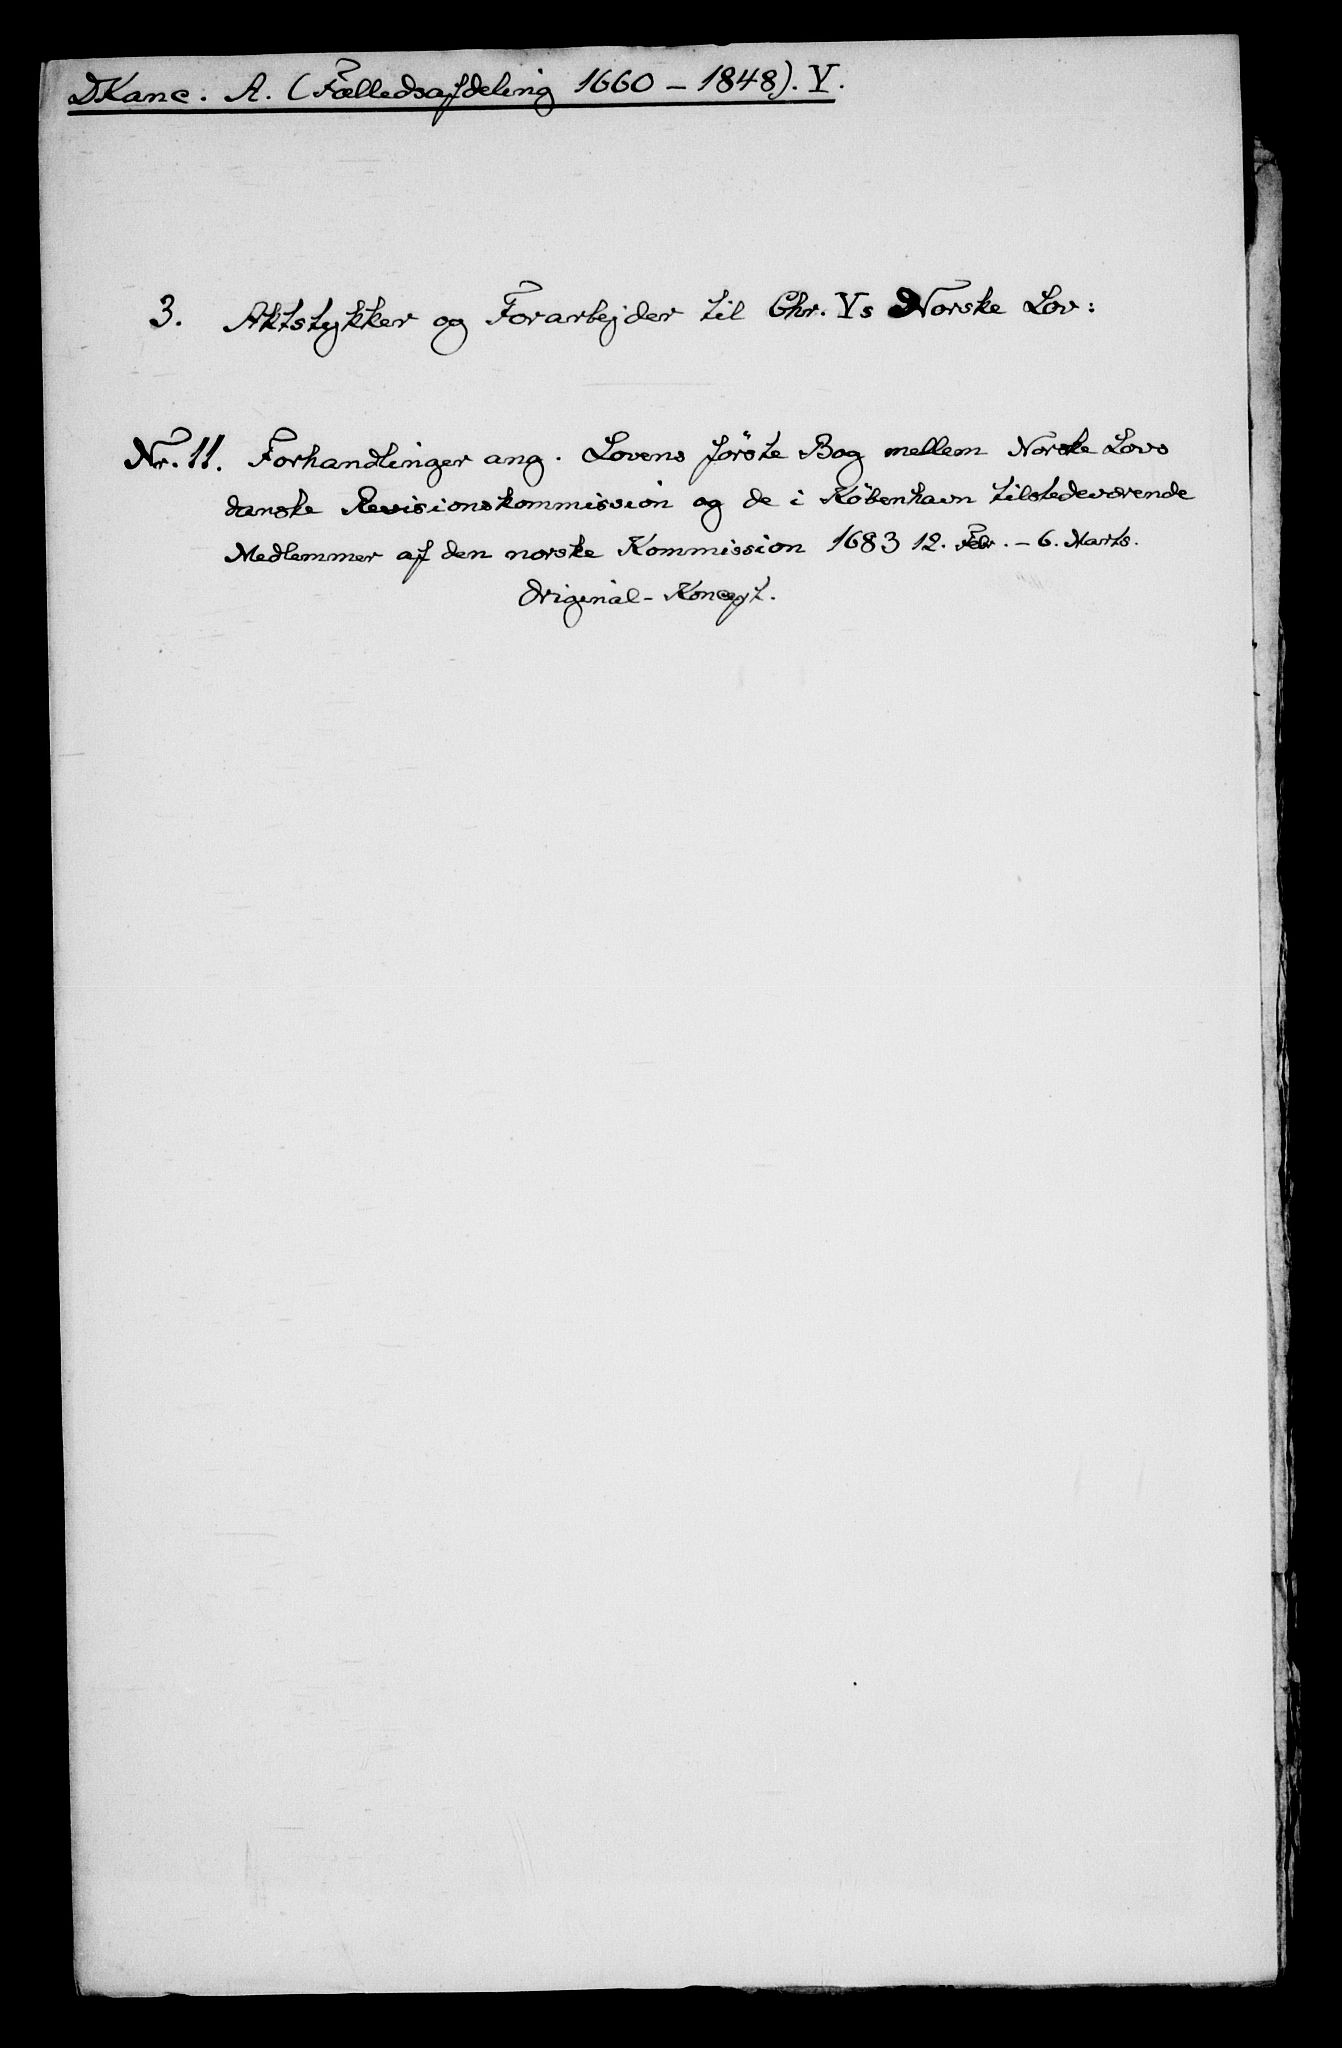 DKanc. A. (Fælledsafdeling 1660 – 1848). V.
3. Aktstykker og Forarbejder til Chr. Vs Norske Lov:
Nr. 11. Forhandlinger ang. Lovens første Bog mellem Norske Lovs
danske Revisionskommission og de i København tilstedeværende
Medlemmer af den norske Kommission 1683 12. Febr. – 6. Marts.
Original-Koncept.